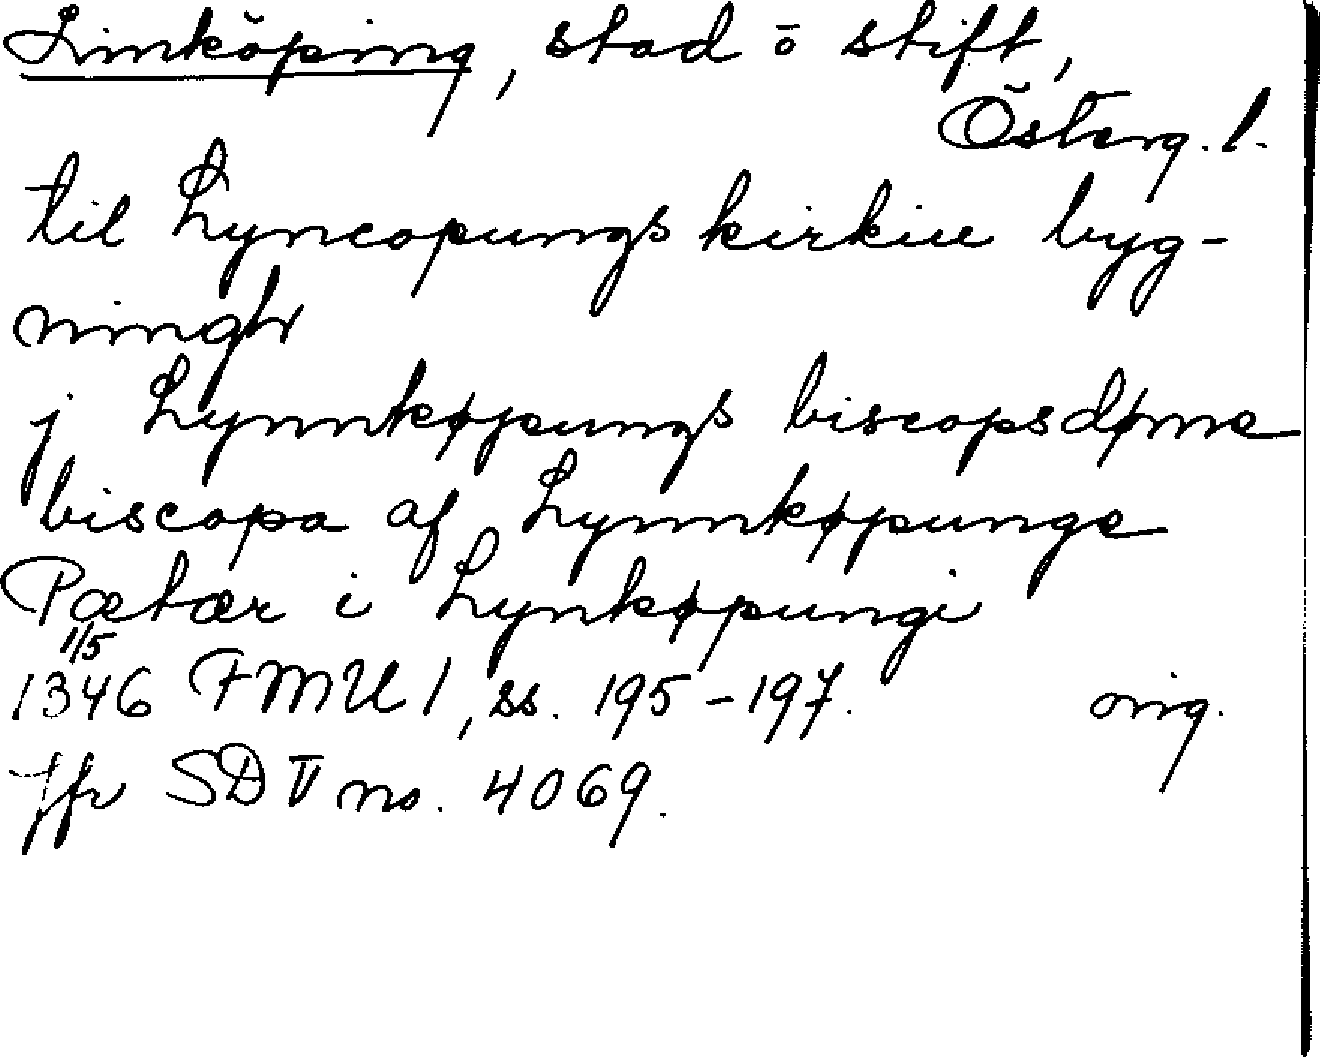 Linköping, stad o stift,
Österg. l.
til Lyncopungs kirkiu byg-
ningh
j Lynnkøpungs biscopsdøme
biscopa af Lynnkøpunge
Pætær i Lynkøpungi
1/5
1346 FMU 1, ss. 195-197. orig.
Jfr SD V no. 4069.